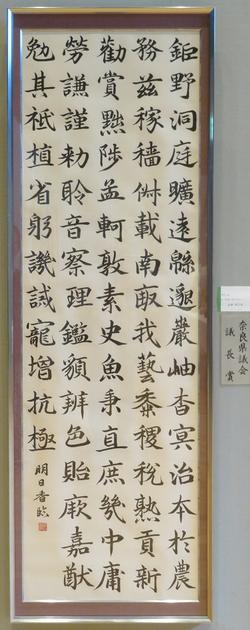 鉅野洞庭曠遠緜邈巖岫杳冥治夲於農
務兹稼穡俶載南畝我藝黍稷稅熟貢新
勸賞黜陟孟軻敦素史魚秉直庶幾中庸
勞謙謹勅聆音察理鑑貌辨色貽厥嘉猷
勉其祗植省躬譏誡寵增抗極
明日香臨
奈良県議会
議長賞